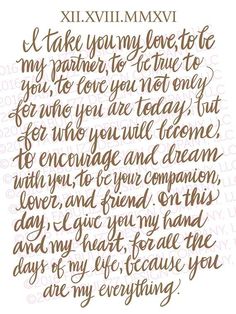 XII.XVIII.MMXVI
I take you my love, to be
my partner, to be true to
you, to love you not only
for who you are today, but
for who you will become,
to encourage and dream
with you, to be your companion,
lover, and friend. On this
day, I give you my hand
and my heart, for all the
days of my life, because you
are my everything.